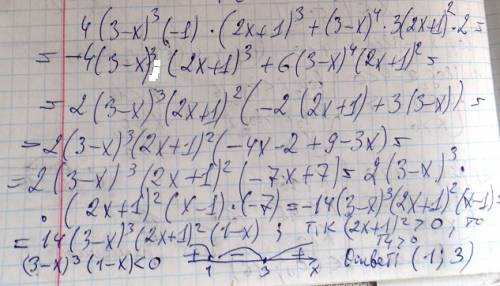 4(3-x)³(-1)·(2x+1)³+(3-x)⁴·3(2x+1)²·2=
=-4(3-x)³(2x+1)³+6(3-x)⁴(2x+1)²=
=2(3-x)³(2x+1)²(-2(2x+1)+3(3-x))=
=2(3-x)³(2x+1)²(-4x-2+9-3x)=
=2(3-x)³(2x+1)²(-7x+7)=2(3-x)³·
·(2x+1)²(x-1)·(-7)=-14(3-x)³(2x+1)²(x-1)=
=14(3-x)³(2x+1)²(1-x); т.к (2x+1)²>0, то
14>0
(3-x)³(1-x)<0 + 1 - 3 + x Ответ: (1;3)